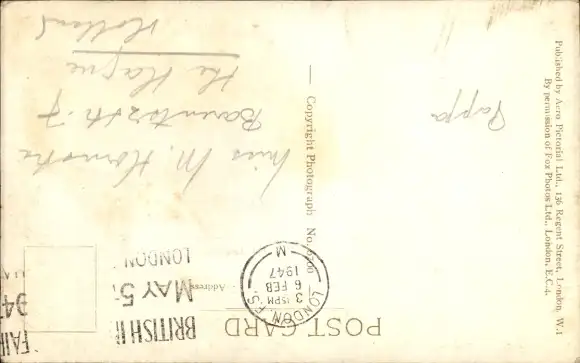 POST CARD
Address
Pappa
Miss M.
The Hague
Holland
LONDON F.S.
3 15PM
6 FEB
1947
M
BRITISH I
MAY 5
LONDON
FAI
947
Copyright Photograph
Published by Aero Pictorial Ltd., 136 Regent Street, London, W.1
By permission of Fox Photos Ltd., London, E.C.4.